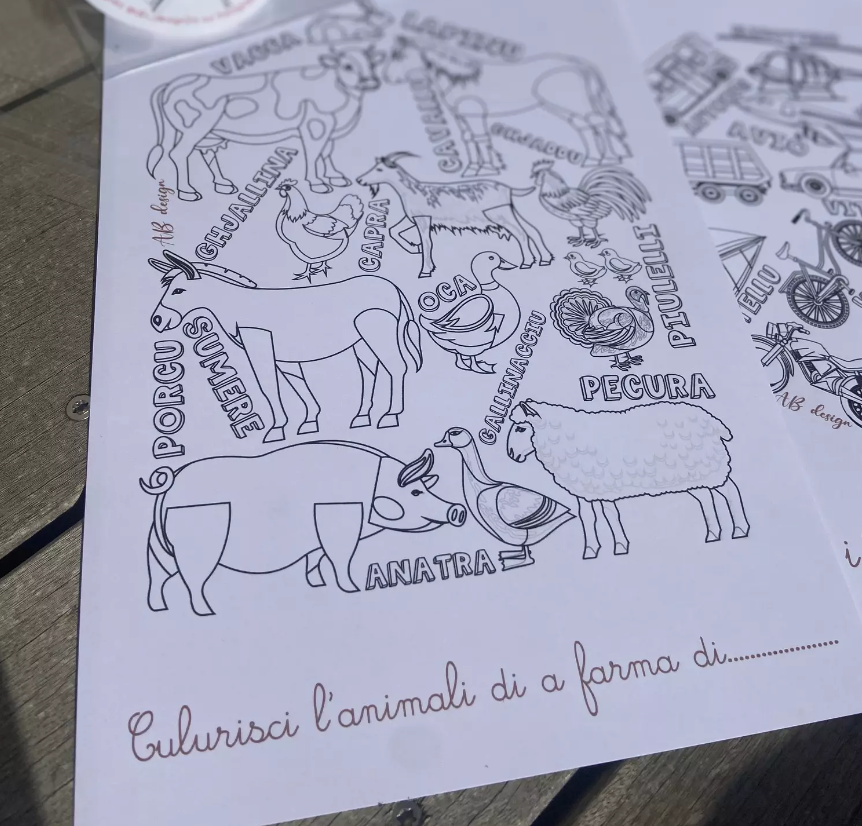 VACCA
LAPINU
CAVALLU
GHJACCU
GHJALLINA
CAPRA
AB design
OCA
PIULELLI
GALLINACCIU
PORCU
SUMERE
PECURA
ANATRA
Culurisci l'animali di a farma di....................
AVIÓ
AB design